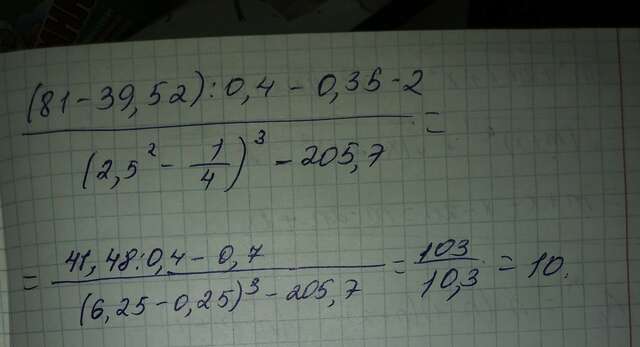 (81-39,52):0,4-0,35·2
(2,5²-1/4)³-205,7
=
= 41,48:0,4-0,7
(6,25-0,25)³-205,7
= 103/10,3 = 10.